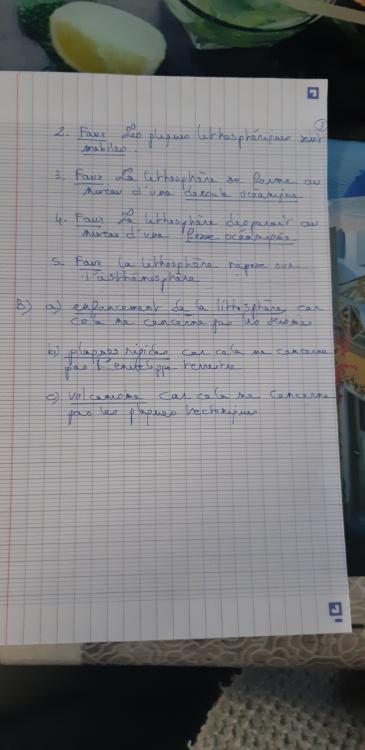 ②
2. Faux Les plaques lithosphériques sont
mobiles.
3. Faux La lithosphère se forme au
niveau d'une dorsale océanique
4. Faux La lithosphère disparait au
niveau d'une fosse océanique
5. Faux la lithosphère repose sur
l'asthénosphère
B) a) enfoncement de la lithosphère car
cela ne concerne pas les
b) plaques rigides car cela ne concerne
pas l'enveloppe terrestre
c) volcanisme car cela ne concerne
pas les plaques tectoniques